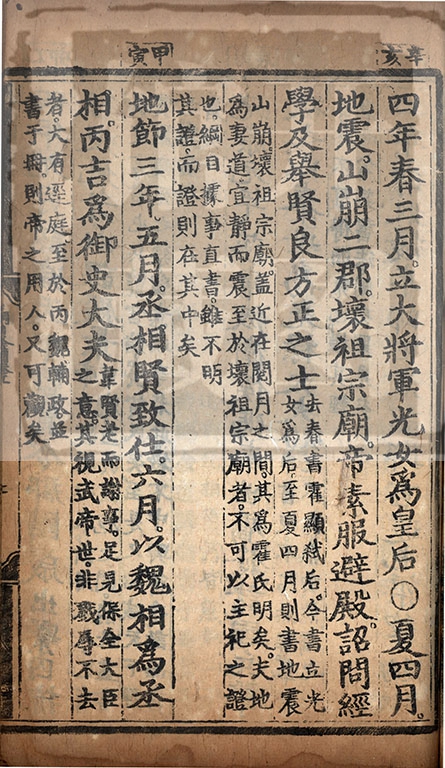 辛亥
四年春三月。立大將軍光女爲皇后○夏四月。
地震。山崩二郡。壞祖宗廟。帝素服避殿。詔問經
學及舉賢良方正之士
去春書霍顯弑后。今書立光
女爲后至夏四月則書地震
山崩壞祖宗廟。蓋近在閱月之間。其爲霍氏明矣。夫地
爲妻道宜靜而震至於壞祖宗廟者。不可以主祀之證
也。綱目據事直書。雖不明
其證。而證則在其中矣
甲寅
地節三年五月。丞相賢致仕。六月。以魏相爲丞
相。丙吉爲御史大夫
韋賢老而謝事。足見保全大臣
之意。其視武帝世。非戮辱不去
者。大有逕庭至於丙魏輔政。並
書于冊。則帝之用人。又可觀矣